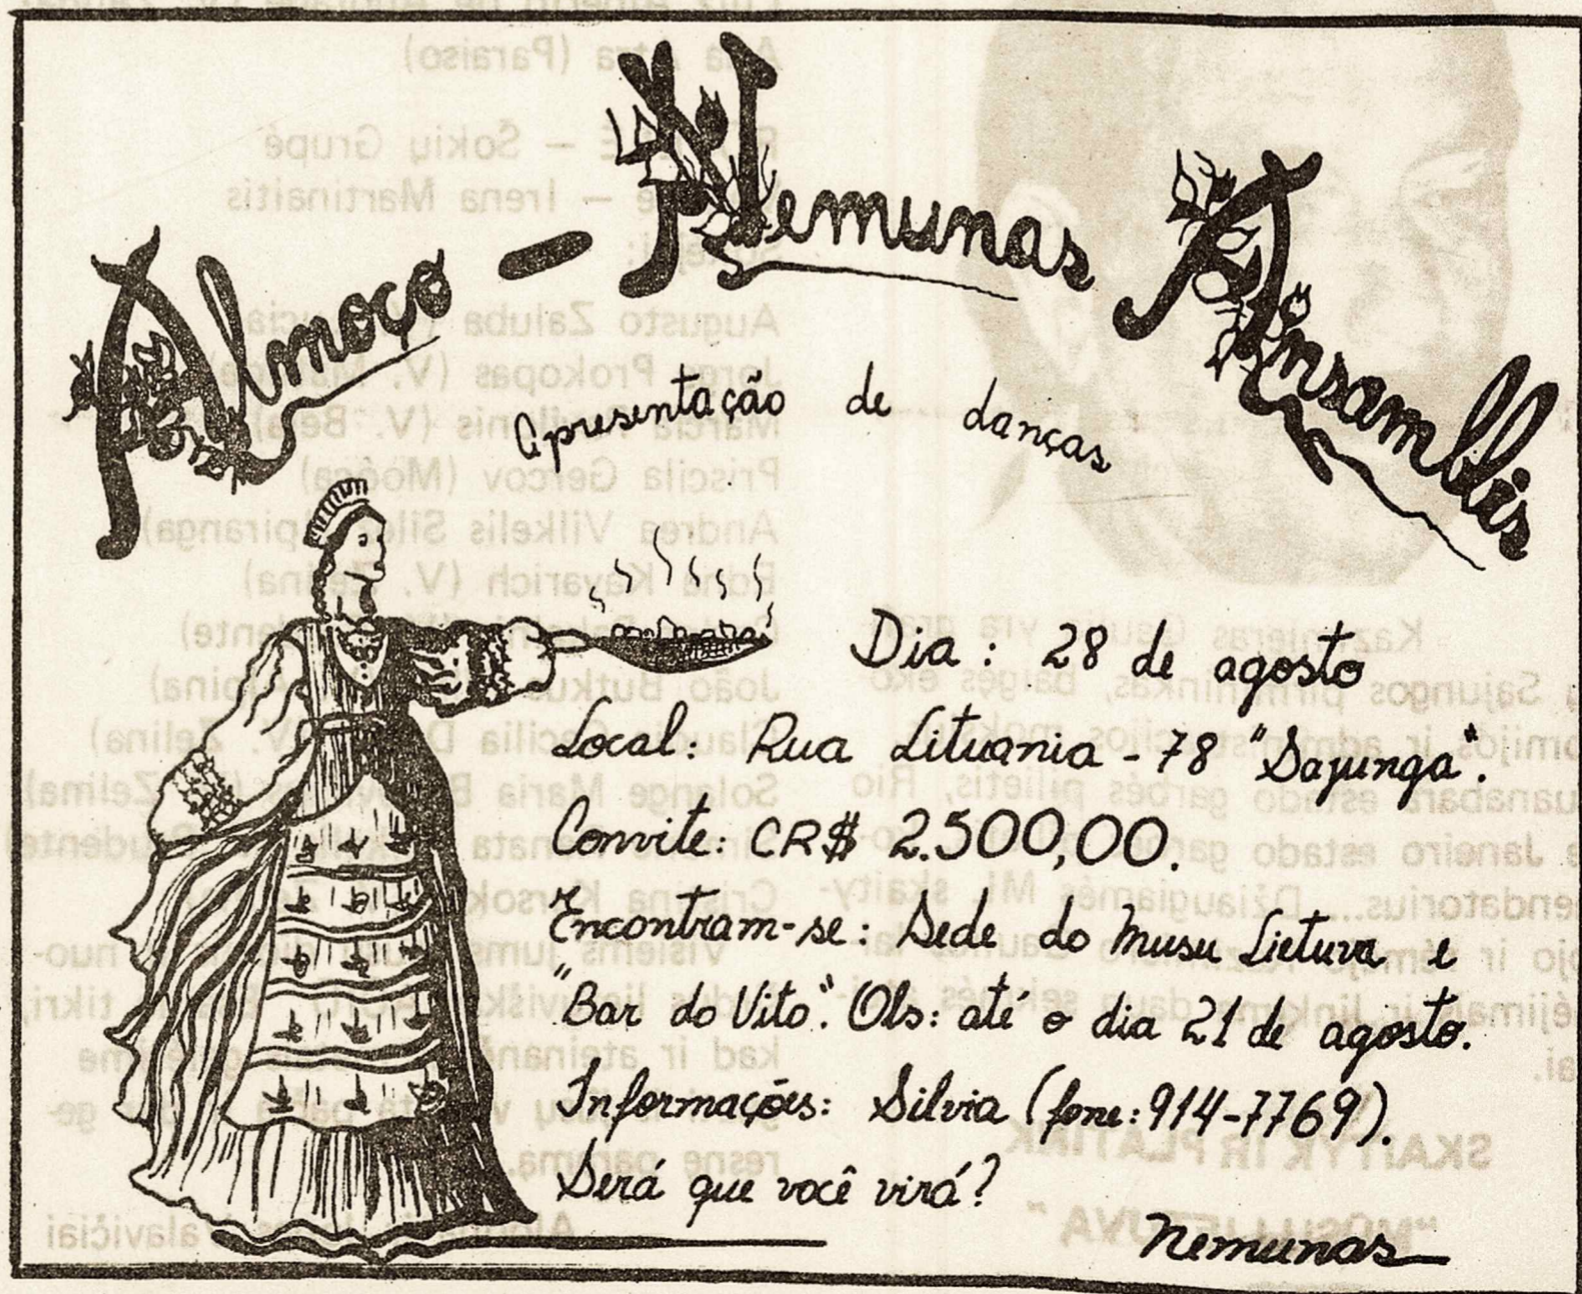 Almoço - Nemunas Ansamblis
Apresentação de danças
Dia: 28 de agosto
Local: Rua Lituania - 78 "Sajunga".
Convite: CR$ 2.500,00.
Encontram-se: Sede do Musu Lietuva e
"Bar do Vito". Obs: até o dia 21 de agosto.
Informações: Silvia (fone: 914-7769).
Será que você virá?
Nemunas